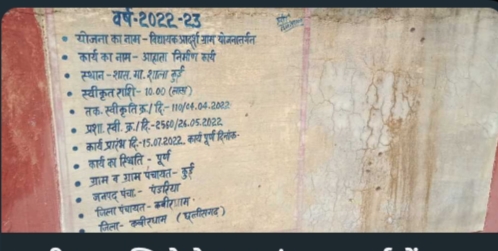 वर्ष-2022-23
योजना का नाम - विधायक आदर्श ग्राम योजनान्तर्गत
कार्य का नाम - आहाता निर्माण कार्य
स्थान - शास. मा. शाला कुई
स्वीकृत राशि - 10.00 (लाख)
तक. स्वीकृति क्र./ दि.-110/06.04.2022
प्रशा. स्वी. क्र./ दि.-2560/26.05.2022
कार्य प्रारंभ दि.-15.07.2022 कार्य पूर्ण दिनांक-
कार्य का स्थिति - पूर्ण
ग्राम व ग्राम पंचायत - कुई
जनपद पंचा.- पंडरिया
जिला पंचायत - कबीरधाम
जिला - कबीरधाम (छत्तीसगढ़)